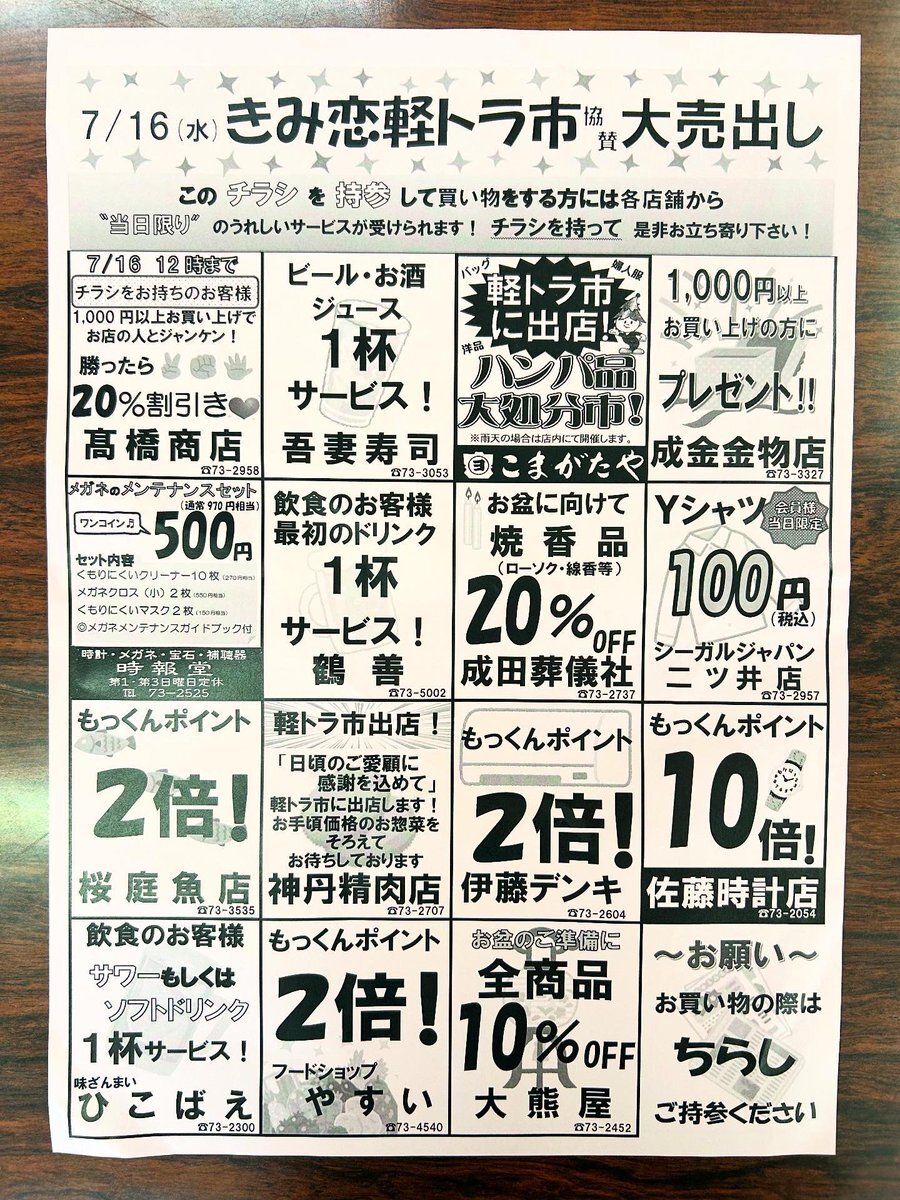 7/16(水) きみ恋軽トラ市 協賛 大売出し
この チラシ を 持参 して買い物をする方には各店舗から
"当日限り" のうれしいサービスが受けられます！ チラシを持って 是非お立ち寄り下さい！
7/16 12時まで
チラシをお持ちのお客様
1,000円以上お買い上げで
お店の人とジャンケン！
勝ったら
20%割引き
髙橋商店
☎73-2958
ビール・お酒
ジュース
1杯
サービス！
吾妻寿司
☎73-3053
バッグ
婦人服
軽トラ市
に出店！
洋品
ハンパ品
大処分市！
※雨天の場合は店内にて開催します。
ヨ こまがたや
1,000円以上
お買い上げの方に
プレゼント!!
成金金物店
☎73-3327
メガネのメンテナンスセット
(通常970円相当)
ワンコイン♬
500円
セット内容
くもりにくいクリーナー10枚(270円相当)
メガネクロス（小）2枚(550円相当)
くもりにくいマスク2枚(150円相当)
◎メガネメンテナンスガイドブック付
時計・メガネ・宝石・補聴器
時報堂
第1・第3日曜日定休
℡ 73-2525
飲食のお客様
最初のドリンク
1杯
サービス！
鶴善
☎73-5002
お盆に向けて
焼香品
(ローソク・線香等)
20%OFF
成田葬儀社
☎73-2737
Yシャツ
会員様
当日限定
100円
(税込)
シーガルジャパン
二ツ井店
☎73-2957
もっくんポイント
2倍！
桜庭魚店
☎73-3535
軽トラ市出店！
「日頃のご愛顧に
感謝を込めて」
軽トラ市に出店します！
お手頃価格のお惣菜を
そろえて
お待ちしております
神丹精肉店
☎73-2707
もっくんポイント
2倍！
伊藤デンキ
☎73-2604
もっくんポイント
10倍！
佐藤時計店
☎73-2054
飲食のお客様
サワーもしくは
ソフトドリンク
1杯サービス！
味ざんまい
ひこばえ
☎73-2300
もっくんポイント
2倍！
フードショップ
やすい
☎73-4540
お盆のご準備に
全商品
10%OFF
大熊屋
☎73-2452
～お願い～
お買い物の際は
ちらし
ご持参ください